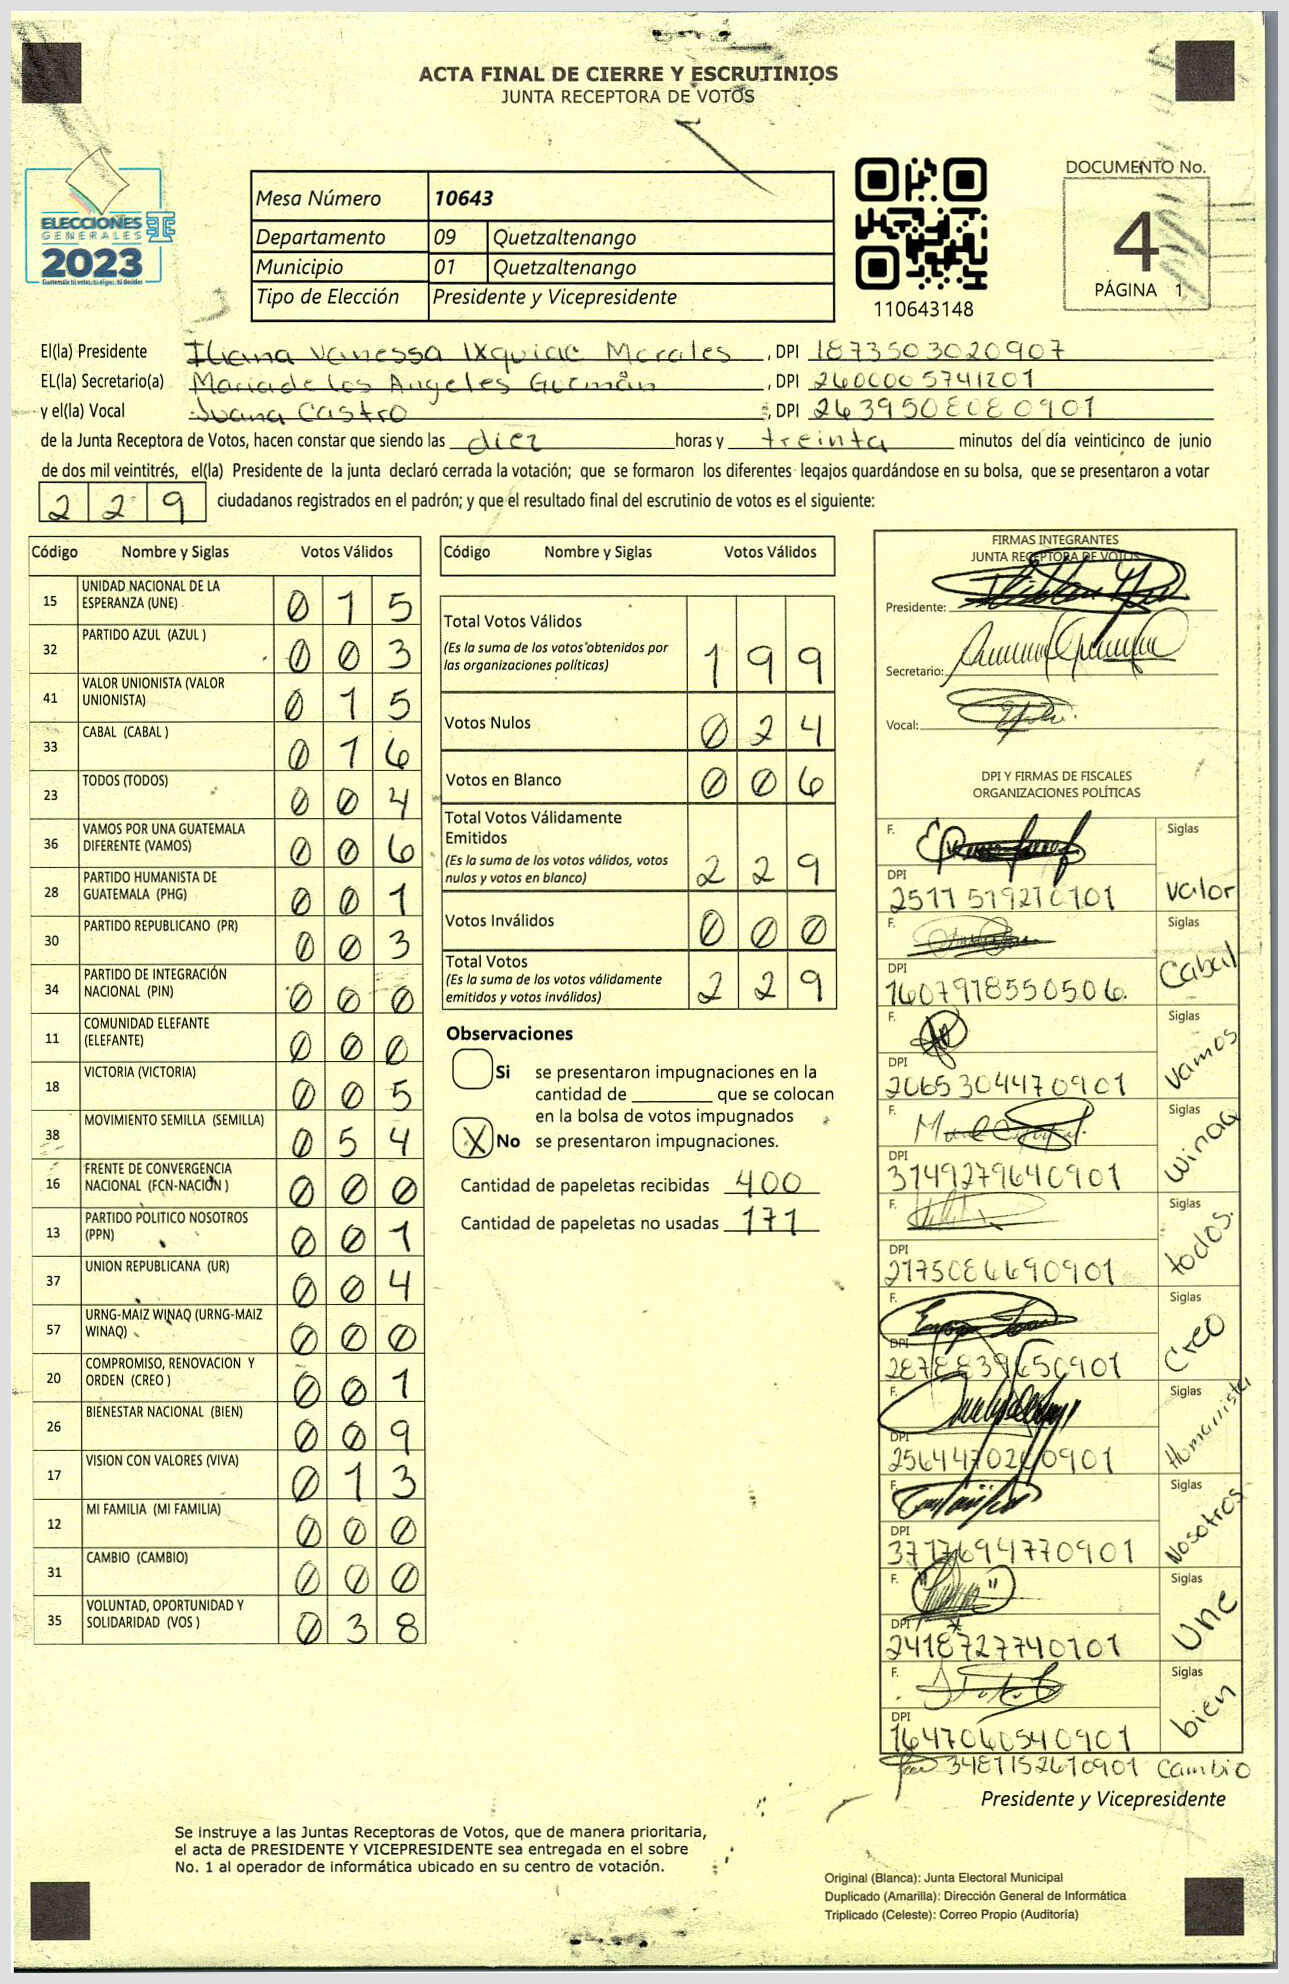 ACTA FINAL DE CIERRE Y ESCRUTINIOS
JUNTA RECEPTORA DE VOTOS
ELECCIONES
GENERALES
2023
Mesa Número 10643
Departamento 09 Quetzaltenango
Municipio 01 Quetzaltenango
Tipo de Elección Presidente y Vicepresidente
110643148
DOCUMENTO No.
4
PÁGINA 1
El(la) Presidente Iliana Vanessa Ixquiac Morales, DPI 1873503020907
EL(la) Secretario(a) Maria de Los Angeles Guzmán, DPI 2600005741201
y el(la) Vocal Juana Castro, DPI 2639508080901
de la Junta Receptora de Votos, hacen constar que siendo las diez horas y treinta minutos del día veinticinco de junio
de dos mil veintitrés, el(la) Presidente de la junta declaró cerrada la votación; que se formaron los diferentes legajos quardándose en su bolsa, que se presentaron a votar
229 ciudadanos registrados en el padrón; y que el resultado final del escrutinio de votos es el siguiente:
Código Nombre y Siglas Votos Válidos
15 UNIDAD NACIONAL DE LA ESPERANZA (UNE) 015
32 PARTIDO AZUL (AZUL ) 003
41 VALOR UNIONISTA (VALOR UNIONISTA) 015
33 CABAL (CABAL ) 016
23 TODOS (TODOS) 004
36 VAMOS POR UNA GUATEMALA DIFERENTE (VAMOS) 006
28 PARTIDO HUMANISTA DE GUATEMALA (PHG) 001
30 PARTIDO REPUBLICANO (PR) 003
34 PARTIDO DE INTEGRACIÓN NACIONAL (PIN) 000
11 COMUNIDAD ELEFANTE (ELEFANTE) 000
18 VICTORIA (VICTORIA) 005
38 MOVIMIENTO SEMILLA (SEMILLA) 054
16 FRENTE DE CONVERGENCIA NACIONAL (FCN-NACION ) 000
13 PARTIDO POLITICO NOSOTROS (PPN) 001
37 UNION REPUBLICANA (UR) 004
57 URNG-MAIZ WINAQ (URNG-MAIZ WINAQ) 000
20 COMPROMISO, RENOVACION Y ORDEN (CREO ) 001
26 BIENESTAR NACIONAL (BIEN) 009
17 VISION CON VALORES (VIVA) 013
12 MI FAMILIA (MI FAMILIA) 000
31 CAMBIO (CAMBIO) 000
35 VOLUNTAD, OPORTUNIDAD Y SOLIDARIDAD (VOS ) 038
Código Nombre y Siglas Votos Válidos
Total Votos Válidos 199
(Es la suma de los votos obtenidos por
las organizaciones políticas)
Votos Nulos 024
Votos en Blanco 006
Total Votos Válidamente
Emitidos 229
(Es la suma de los votos válidos, votos
nulos y votos en blanco)
Votos Inválidos 000
Total Votos 229
(Es la suma de los votos válidamente
emitidos y votos inválidos)
Observaciones
Si se presentaron impugnaciones en la
cantidad de ________ que se colocan
en la bolsa de votos impugnados
X No se presentaron impugnaciones.
Cantidad de papeletas recibidas 400
Cantidad de papeletas no usadas 171
FIRMAS INTEGRANTES
JUNTA RECEPTORA DE VOTOS
Presidente:
Secretario:
Vocal:
DPI Y FIRMAS DE FISCALES
ORGANIZACIONES POLÍTICAS
F. Siglas
DPI Valor
F. Siglas
DPI 1607918550506. Cabal
F. Siglas
DPI 2065304470901 Vamos
F. Siglas
DPI 3749279640901 Winaq
F. Siglas
DPI 2175086690901 todos.
F. Siglas
DPI 2878839650901 Creo
F. Siglas
DPI 2564470260901 Humanista
F. Siglas
DPI 3717694770901 Nosotros
F. Siglas
DPI 2418727740101 Une
F. Siglas
DPI 1647060540901 bien
3481152610901 Cambio
Presidente y Vicepresidente
Se instruye a las Juntas Receptoras de Votos, que de manera prioritaria,
el acta de PRESIDENTE Y VICEPRESIDENTE sea entregada en el sobre
No. 1 al operador de informática ubicado en su centro de votación.
Original (Blanca): Junta Electoral Municipal
Duplicado (Amarilla): Dirección General de Informática
Triplicado (Celeste): Correo Propio (Auditoría)